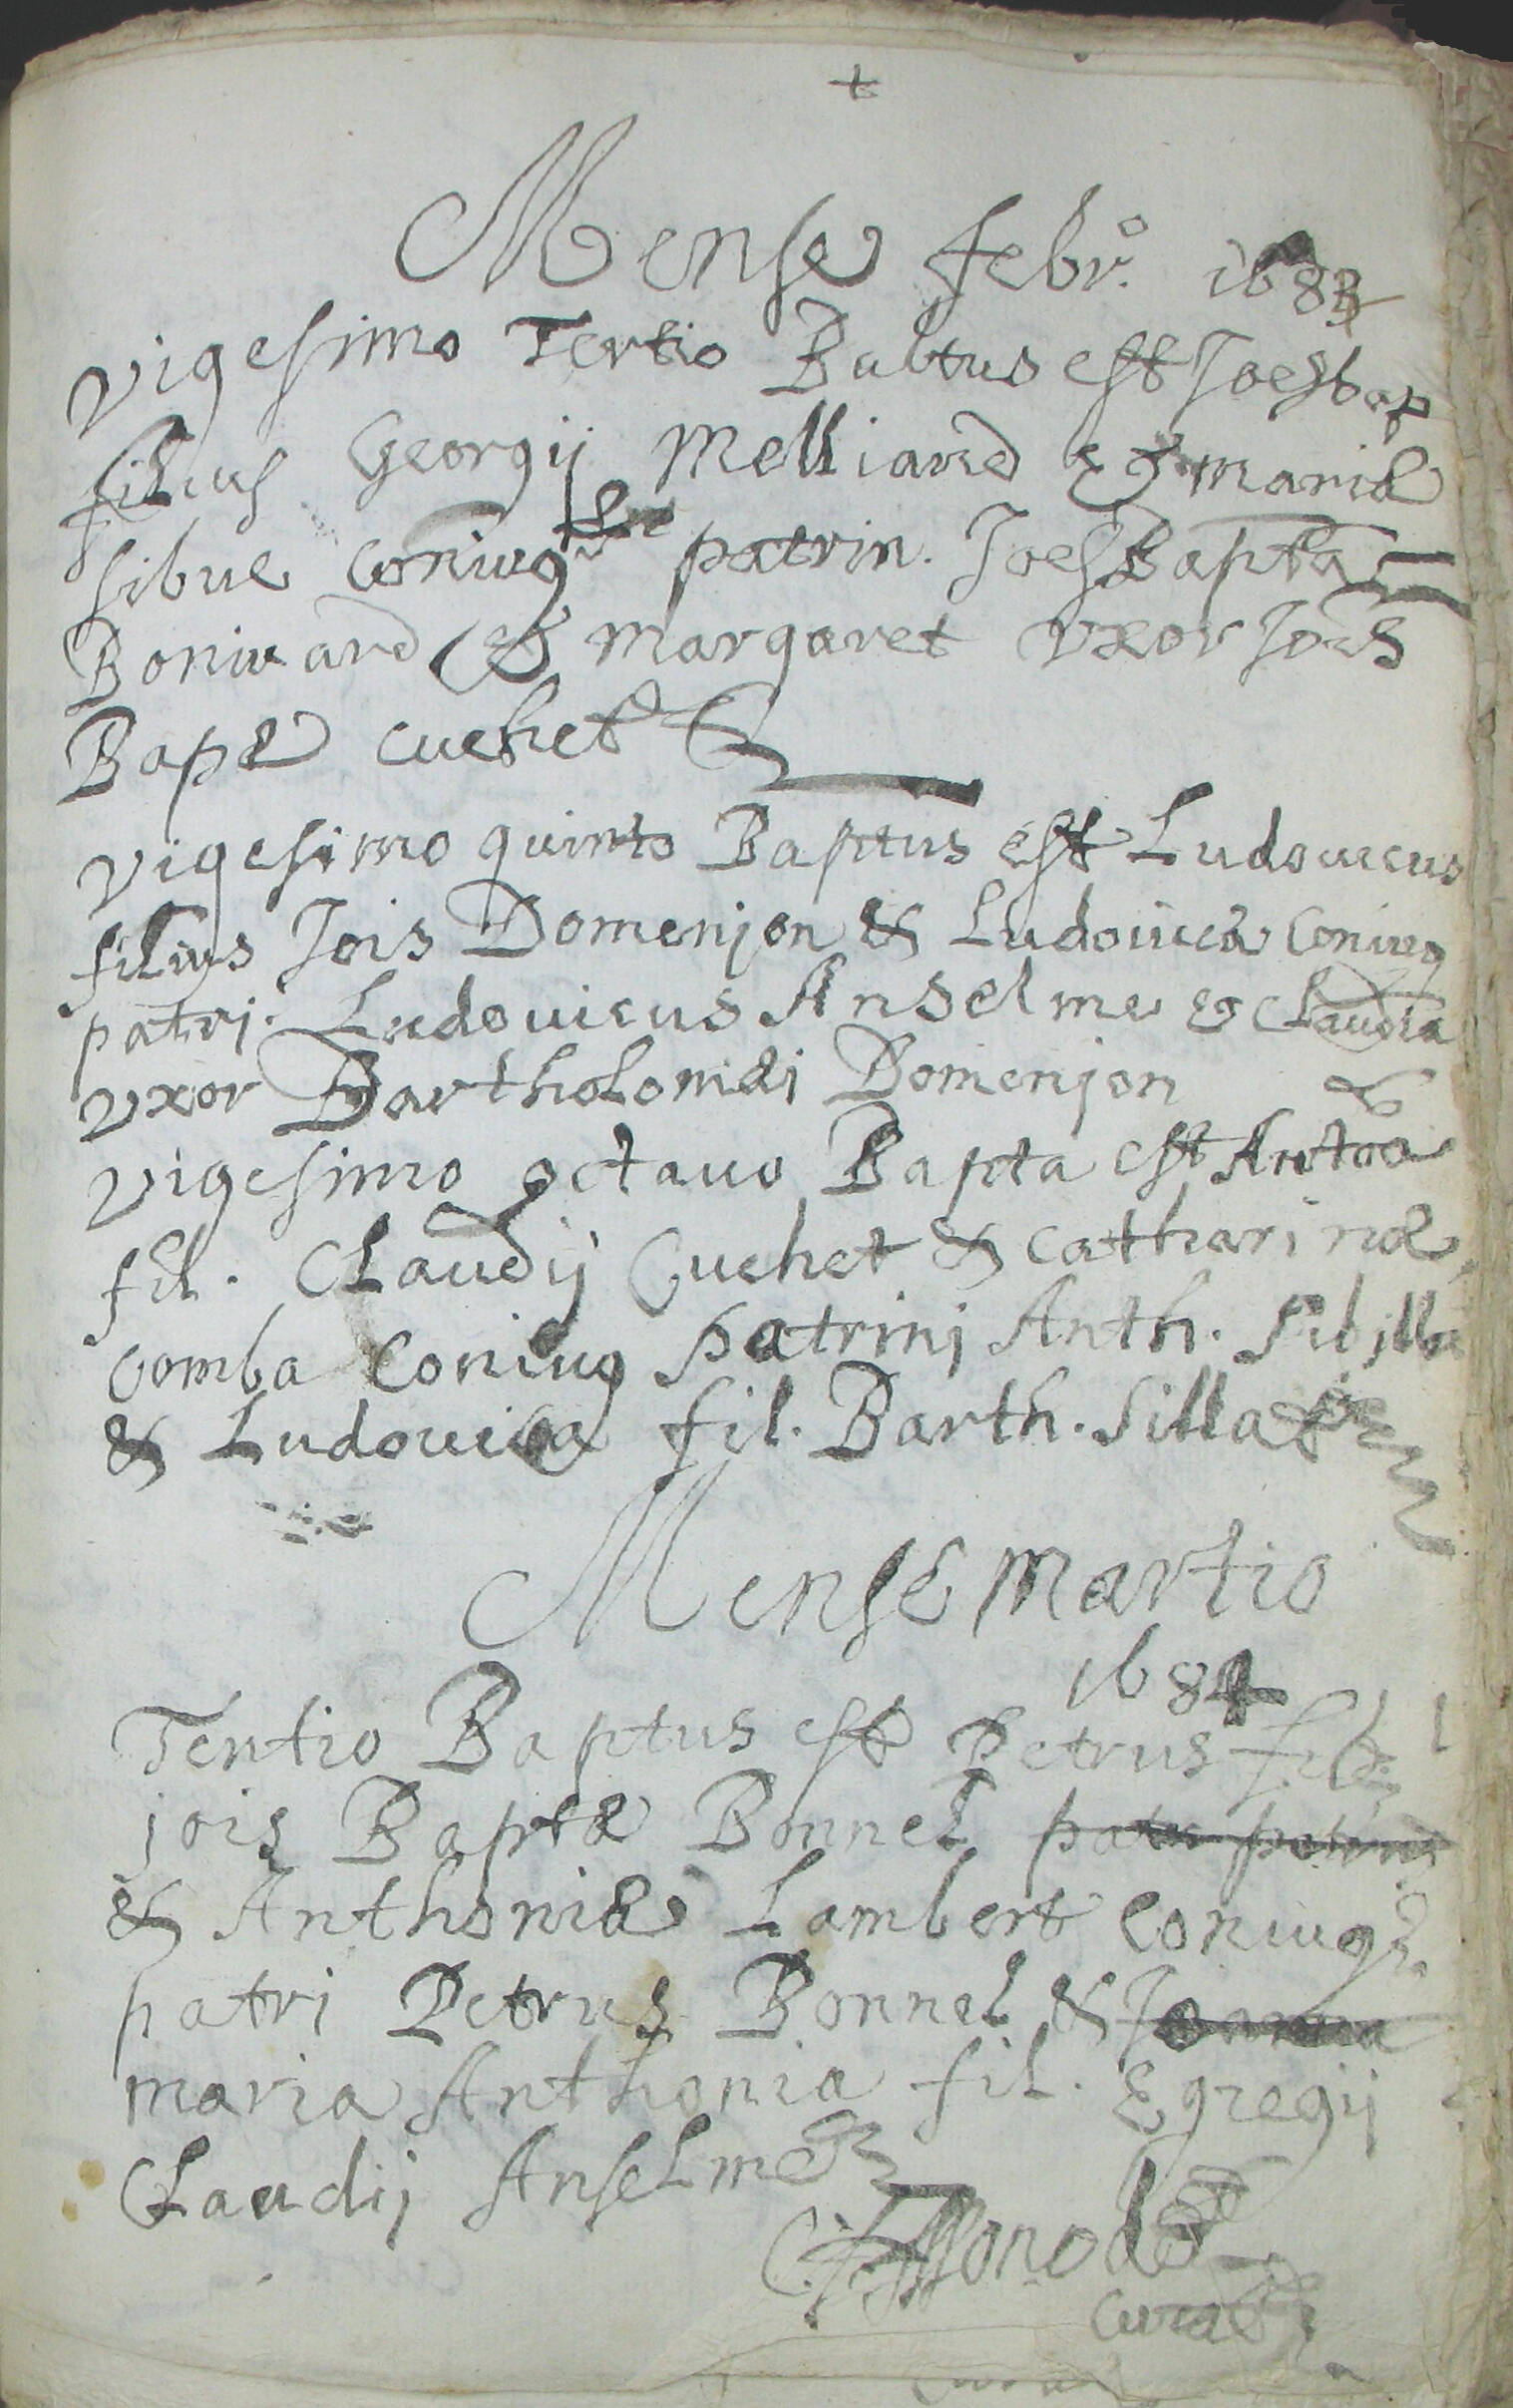 +
Mense febr.° 1683
vigesimo Tertio Babtus est Joesbap
filius Georgij Melliand & mariæ
sibue coniug patrin. Joes Bapta
Boniuard & margaret vxor Jo̅e̅s
Bapæ cuchet
vigesimo quinto Baptus est Ludouicus
filius Jois Domenjon & Ludouica Coniug
patri. Ludouicus Anselme & Claudia
vxor Bartholomæi Domenjon
vigesimo octauo Bapta est Anto̅a
fil. Claudij Cuchet & Catharinæ
Comba Coniug patrinj Anth. Sibille
& Ludouica fil. Barth. Sillat
Mense martio
1684
Tertio Baptus est Petrus fil.
jois Baptæ Bonnet pater patrini
& Anthoniæ Lambert Coniug
patri Petrus Bonnel & Joanna
maria Anthonia fil. Egregij
Claudij Anselme
Monod
Curat